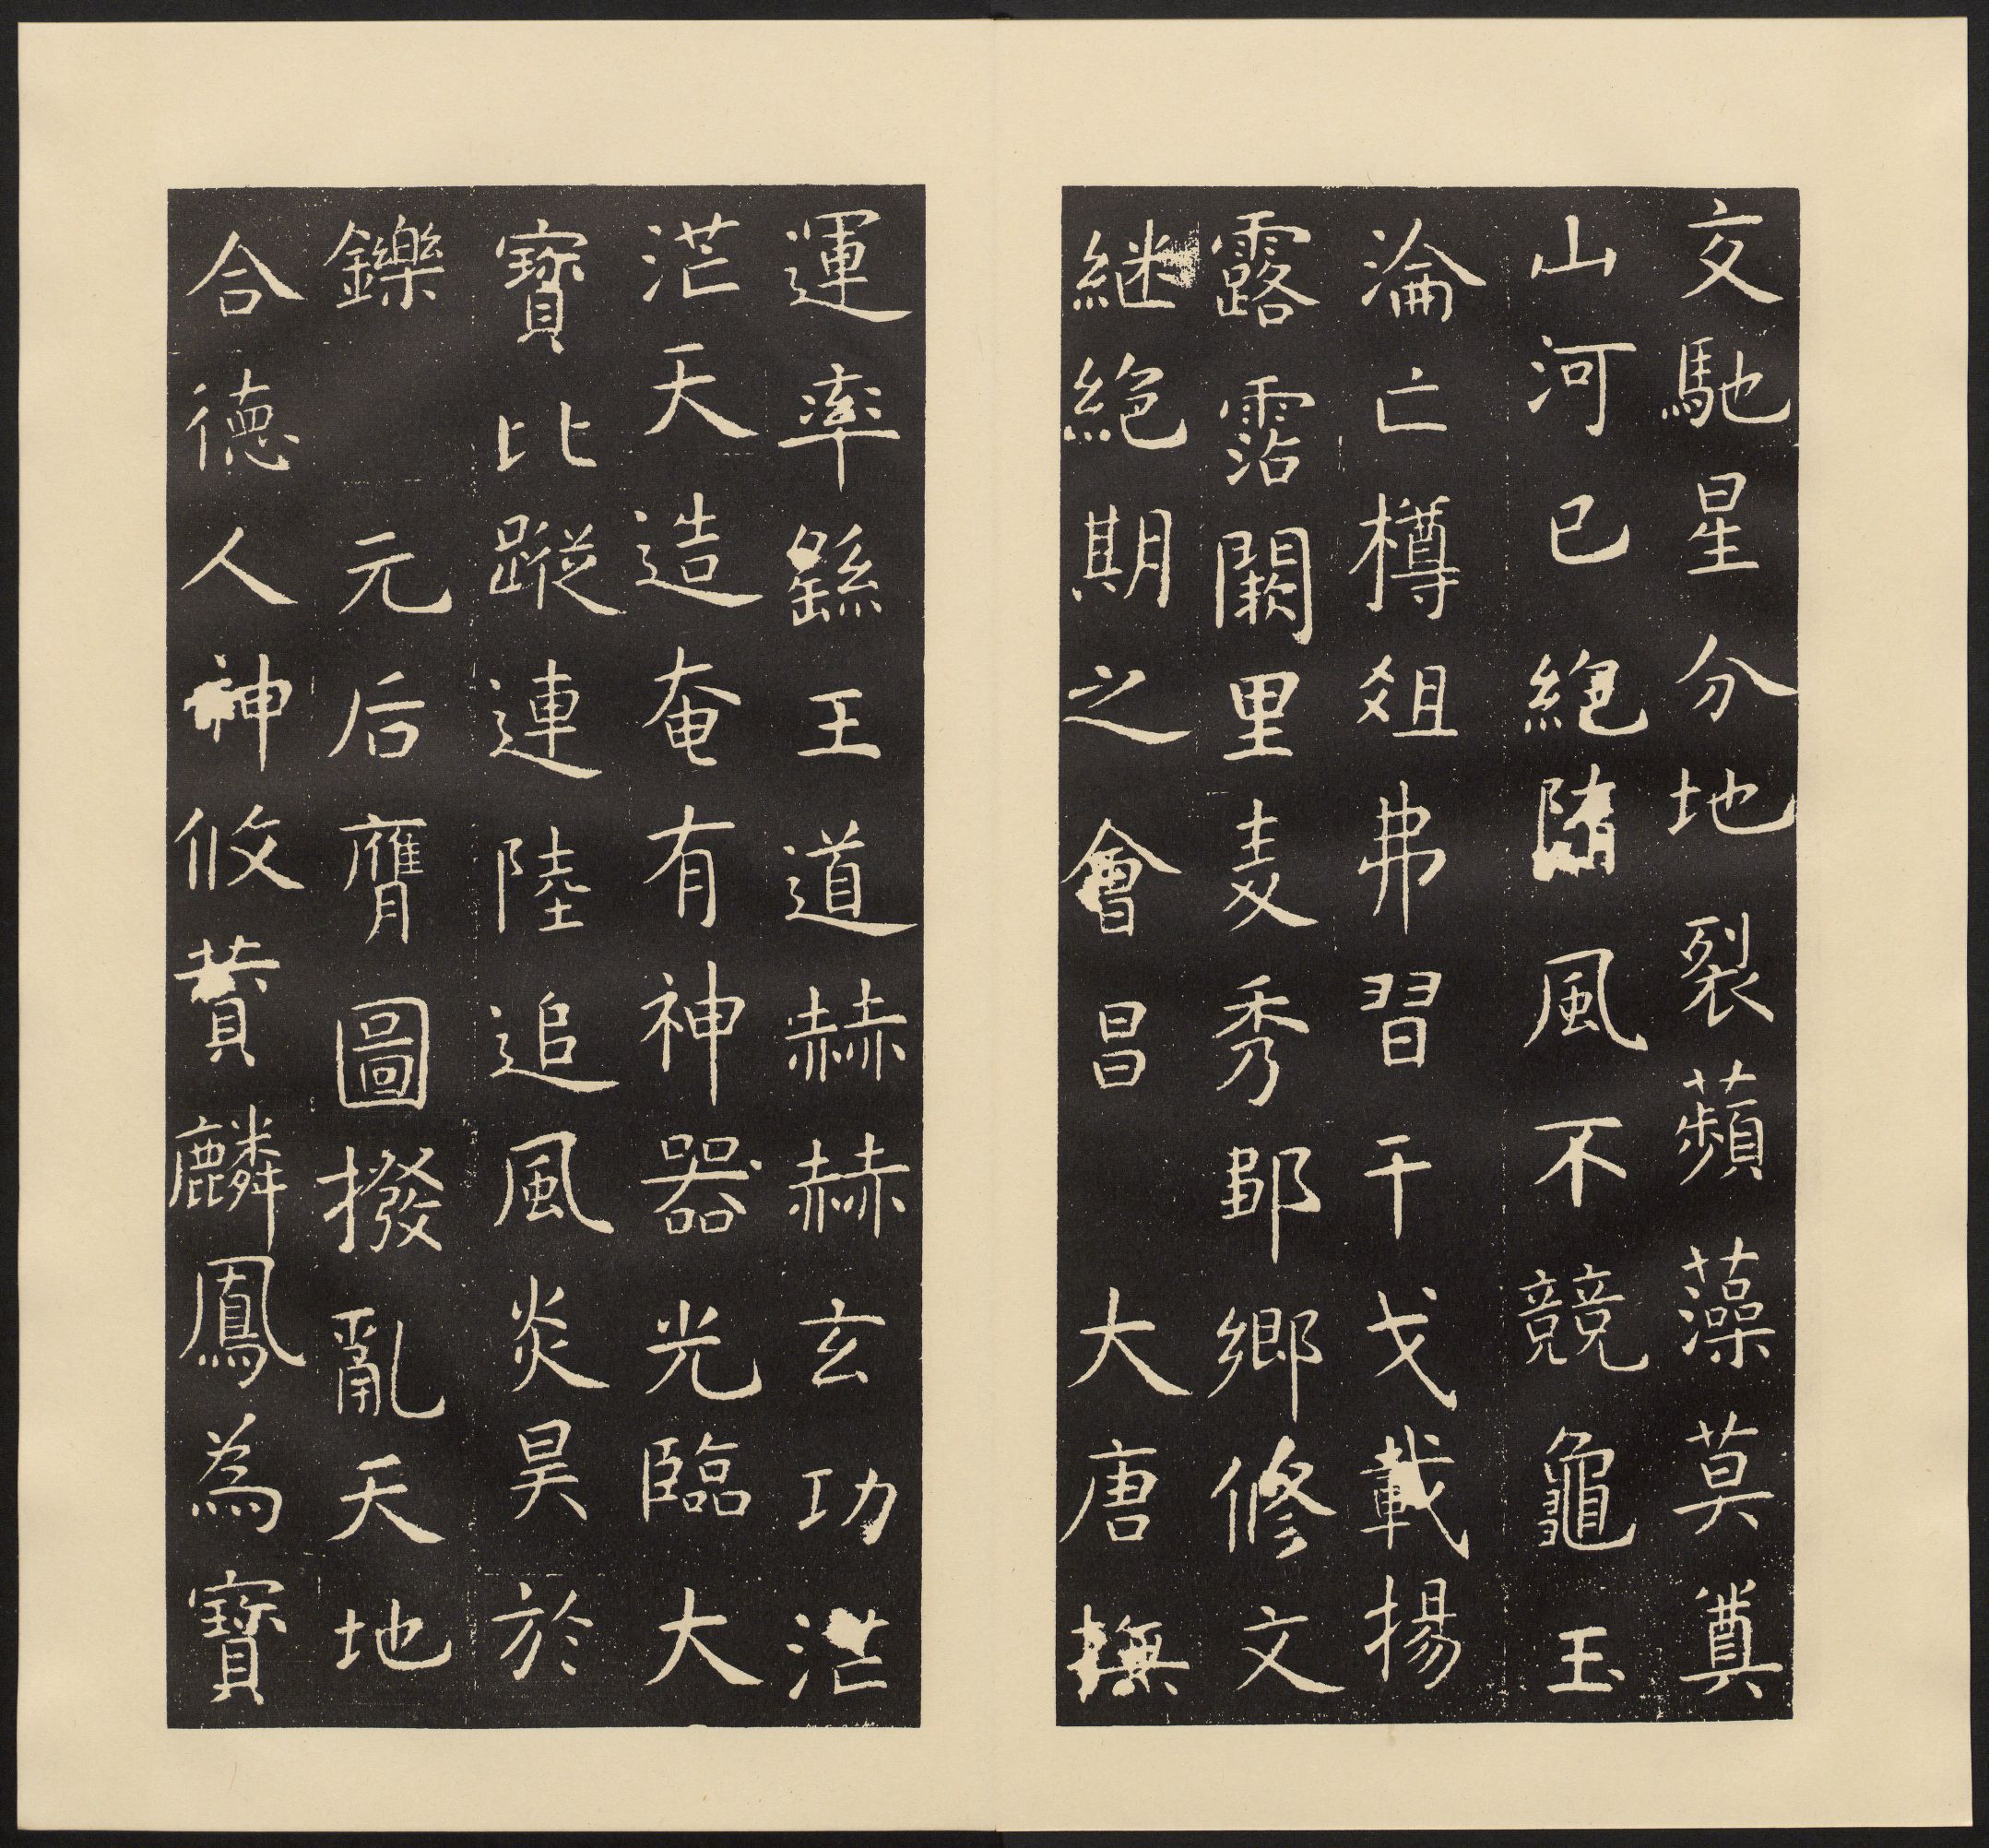 交馳星分地裂蘋藻莫奠
山河已絕隋風不競龜玉
淪亡樽俎弗習干戈載揚
露霑闕里麦秀鄒鄉修文
継絕期之會昌 大唐撫
運率繇王道赫赫玄功茫
茫天造奄有神器光臨大
寶比蹤連陸追風炎昊於
鑠 元后膺圖撥亂天地
合德人神攸賛麟鳳為寶